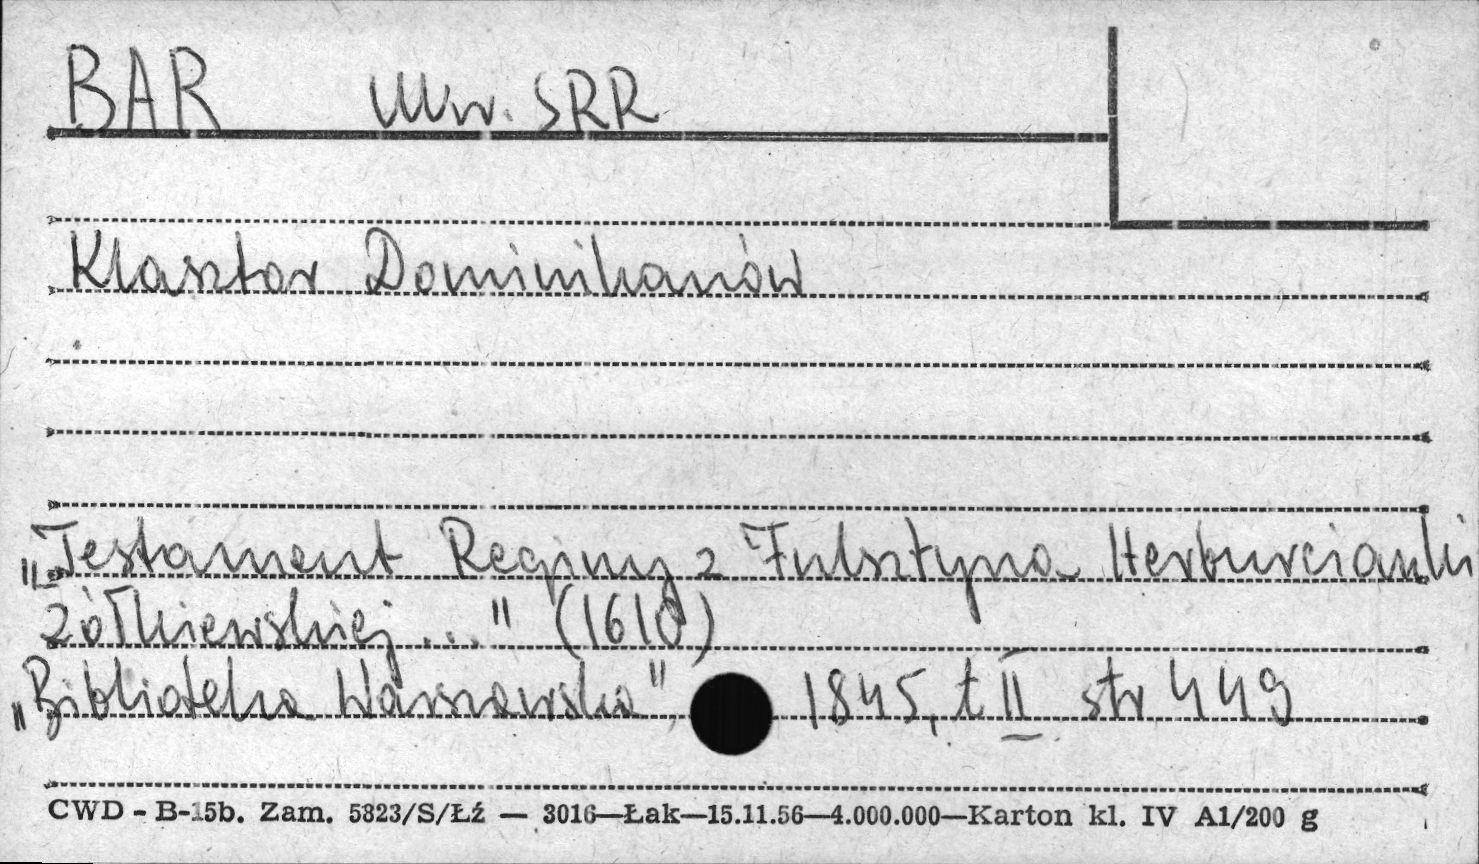 BAR Ukr. SRR
Klasztor Dominikanów
„Testament Reginy z Fulsztyna Herburcianki
Żółkiewskiej..." (1610)
„Biblioteka Warszawska", 1845, t II str 449
CWD - B-15b. Zam. 5823/S/Łź — 3016—Łak—15.11.56—4.000.000—Karton kl. IV A1/200 g